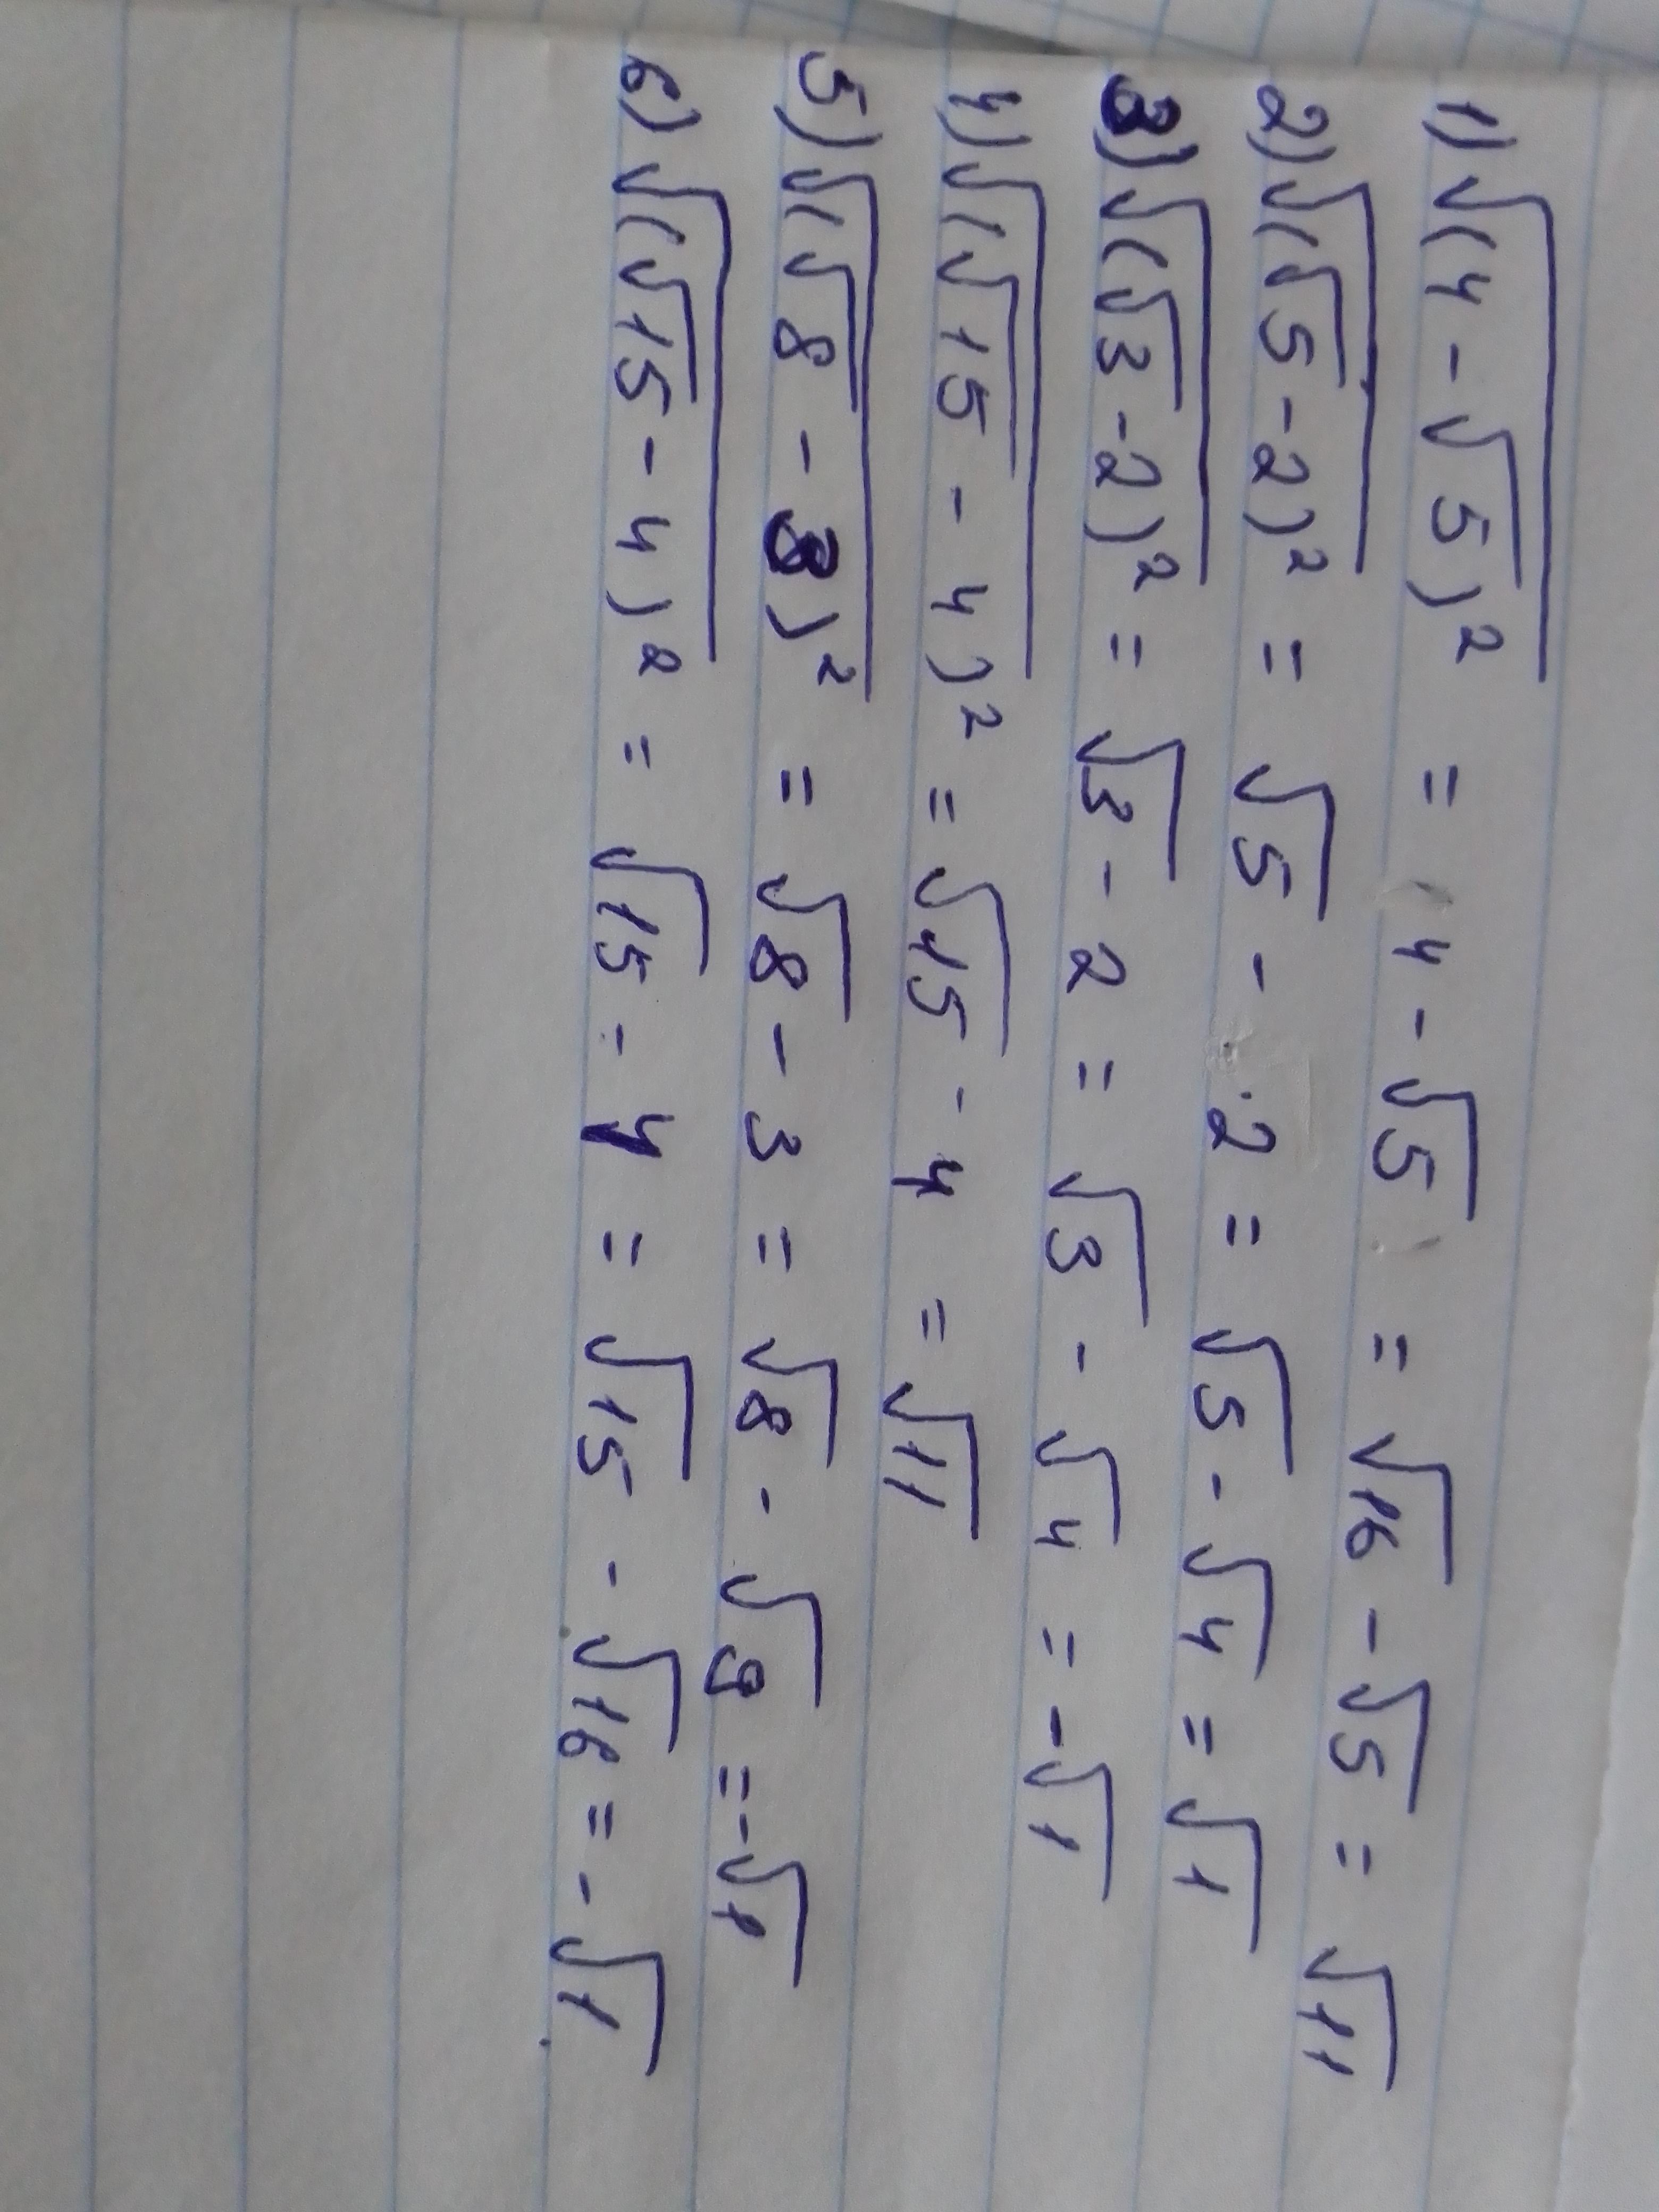 1) √(4 - √5)² = 4 - √5 = √16 - √5 = √11
2) √(√5 - 2)² = √5 - 2 = √5 - √4 = √1
3) √(√3 - 2)² = √3 - 2 = √3 - √4 = -√1
4) √(√15 - 4)² = √15 - 4 = √11
5) √(√8 - 3)² = √8 - 3 = √8 - √9 = -√1
6) √(√15 - 4)² = √15 - 4 = √15 - √16 = -√1